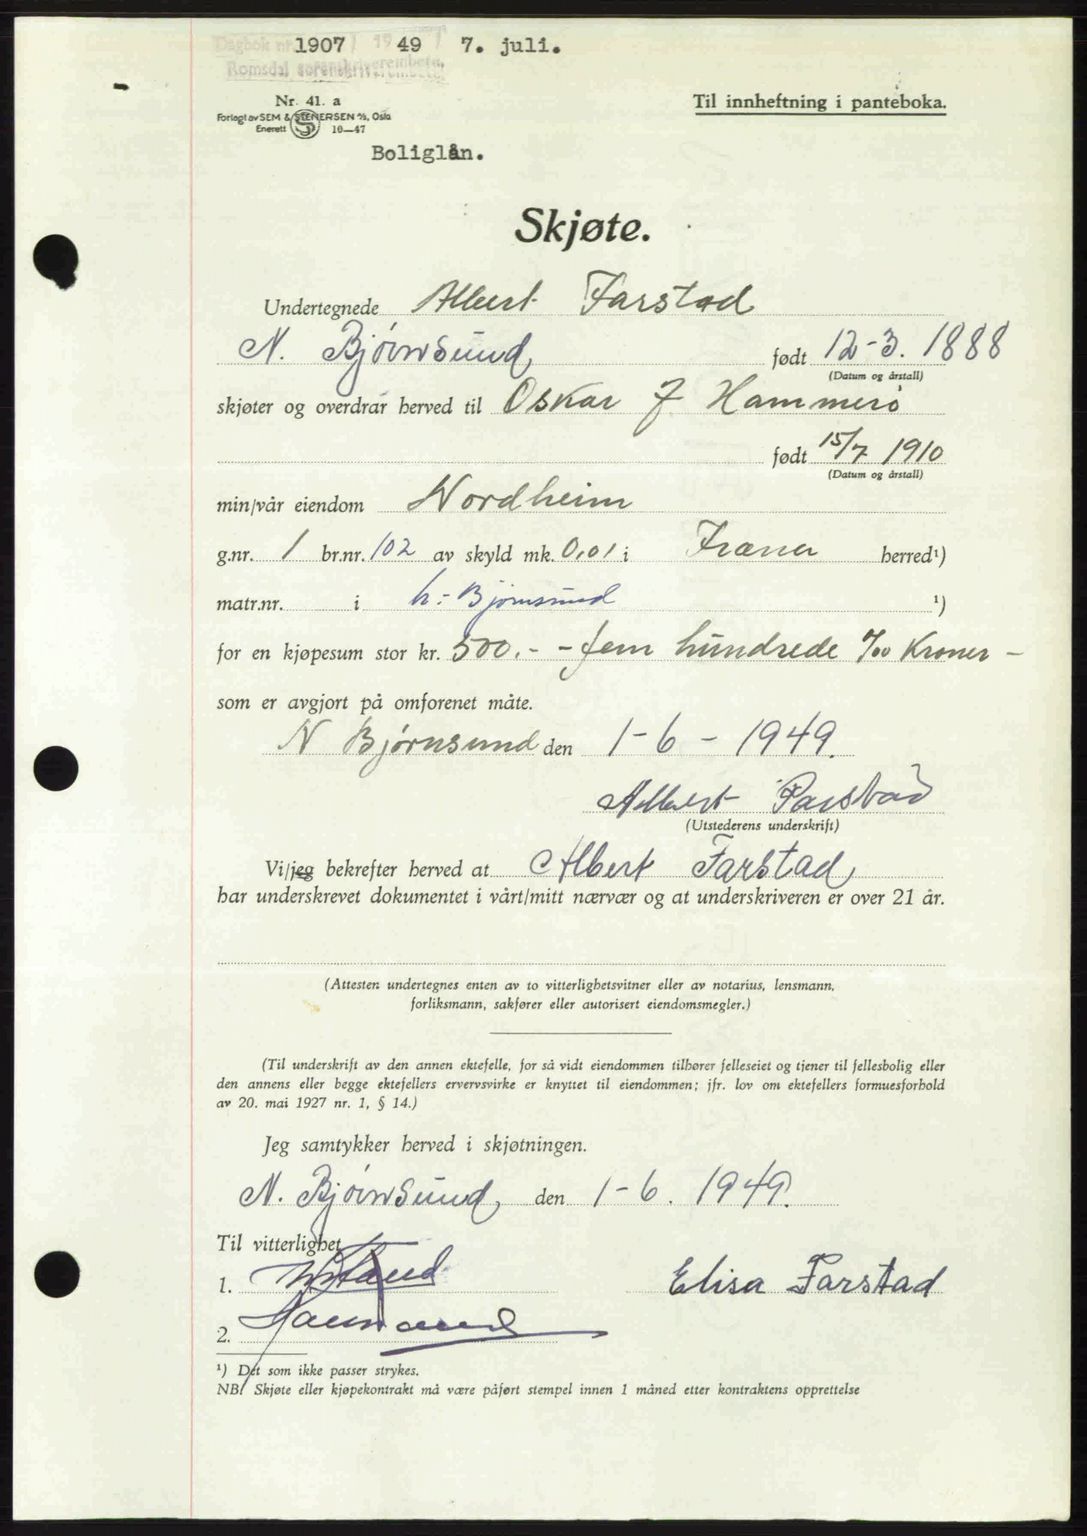 Dagbok nr. 1907 19 49 7. juli.
Romsdal sorenskriverembete
Nr. 41. a
Forlagt av SEM & STENERSEN A/S, Oslo
Enerett S 10-47
Til innheftning i panteboka.
Boliglån.
Skjøte.
Undertegnede Albert Farstad
N. Bjørnsund født 12-3. 1888
(Datum og årstall)
skjøter og overdrar herved til Oskar J Hammerø
født 15/7 1910
(Datum og årstall)
min/vår eiendom Nordheim
g.nr. 1 br.nr. 102 av skyld mk. 0,01 i Fræna herred¹)
matr.nr. i N:- Bjørnsund ¹)
for en kjøpesum stor kr. 500.- - fem hundrede %oo Kroner -
som er avgjort på omforenet måte.
N Bjørnsund den 1-6-1949.
Albert Farstad
(Utstederens underskrift)
Vi/jeg bekrefter herved at Albert Farstad
har underskrevet dokumentet i vårt/mitt nærvær og at underskriveren er over 21 år.
(Attesten undertegnes enten av to vitterlighetsvitner eller av notarius, lensmann,
forliksmann, sakfører eller autorisert eiendomsmegler.)
(Til underskrift av den annen ektefelle, for så vidt eiendommen tilhører felleseiet og tjener til fellesbolig eller
den annens eller begge ektefellers ervervsvirke er knyttet til eiendommen; jfr. lov om ektefellers formuesforhold
av 20. mai 1927 nr. 1, § 14.)
Jeg samtykker herved i skjøtningen.
N. Bjørnsund, den 1-6. 1949.
Til vitterlighet
1.
Elisa Farstad
2.
¹) Det som ikke passer strykes.
NB! Skjøte eller kjøpekontrakt må være påført stempel innen 1 måned etter kontraktens opprettelse